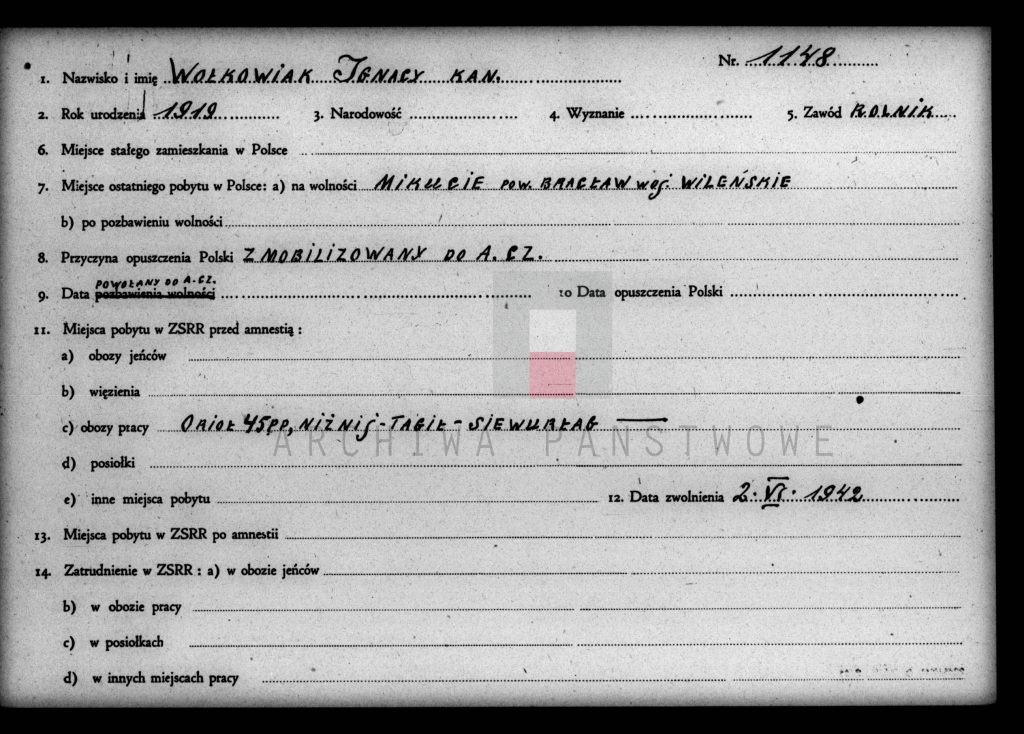 Nr. 1148
1. Nazwisko i imię WOŁKOWIAK IGNACY KAN.
2. Rok urodzenia 1919 3. Narodowość 4. Wyznanie 5. Zawód ROLNIK
6. Miejsce stałego zamieszkania w Polsce
7. Miejsce ostatniego pobytu w Polsce: a) na wolności MIKUCIE pow. BRACŁAW woj. WILEŃSKIE
b) po pozbawieniu wolności
8. Przyczyna opuszczenia Polski ZMOBILIZOWANY DO A. CZ.
POWOŁANY DO A. CZ.
9. Data pozbawienia wolności 10 Data opuszczenia Polski
11. Miejsca pobytu w ZSRR przed amnestią :
a) obozy jeńców
b) więzienia
c) obozy pracy ORIOŁ 45PP, NIŻNIJ-TAGIŁ-SIEWURŁAG
ARCHIWA PAŃSTWOWE
d) posiołki
e) inne miejsca pobytu 12. Data zwolnienia 2. VI. 1942
13. Miejsca pobytu w ZSRR po amnestii
14. Zatrudnienie w ZSRR : a) w obozie jeńców
b) w obozie pracy
c) w posiołkach
d) w innych miejscach pracy